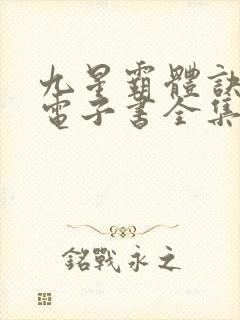 九星霸體訣
電子書全集
銘戰永之